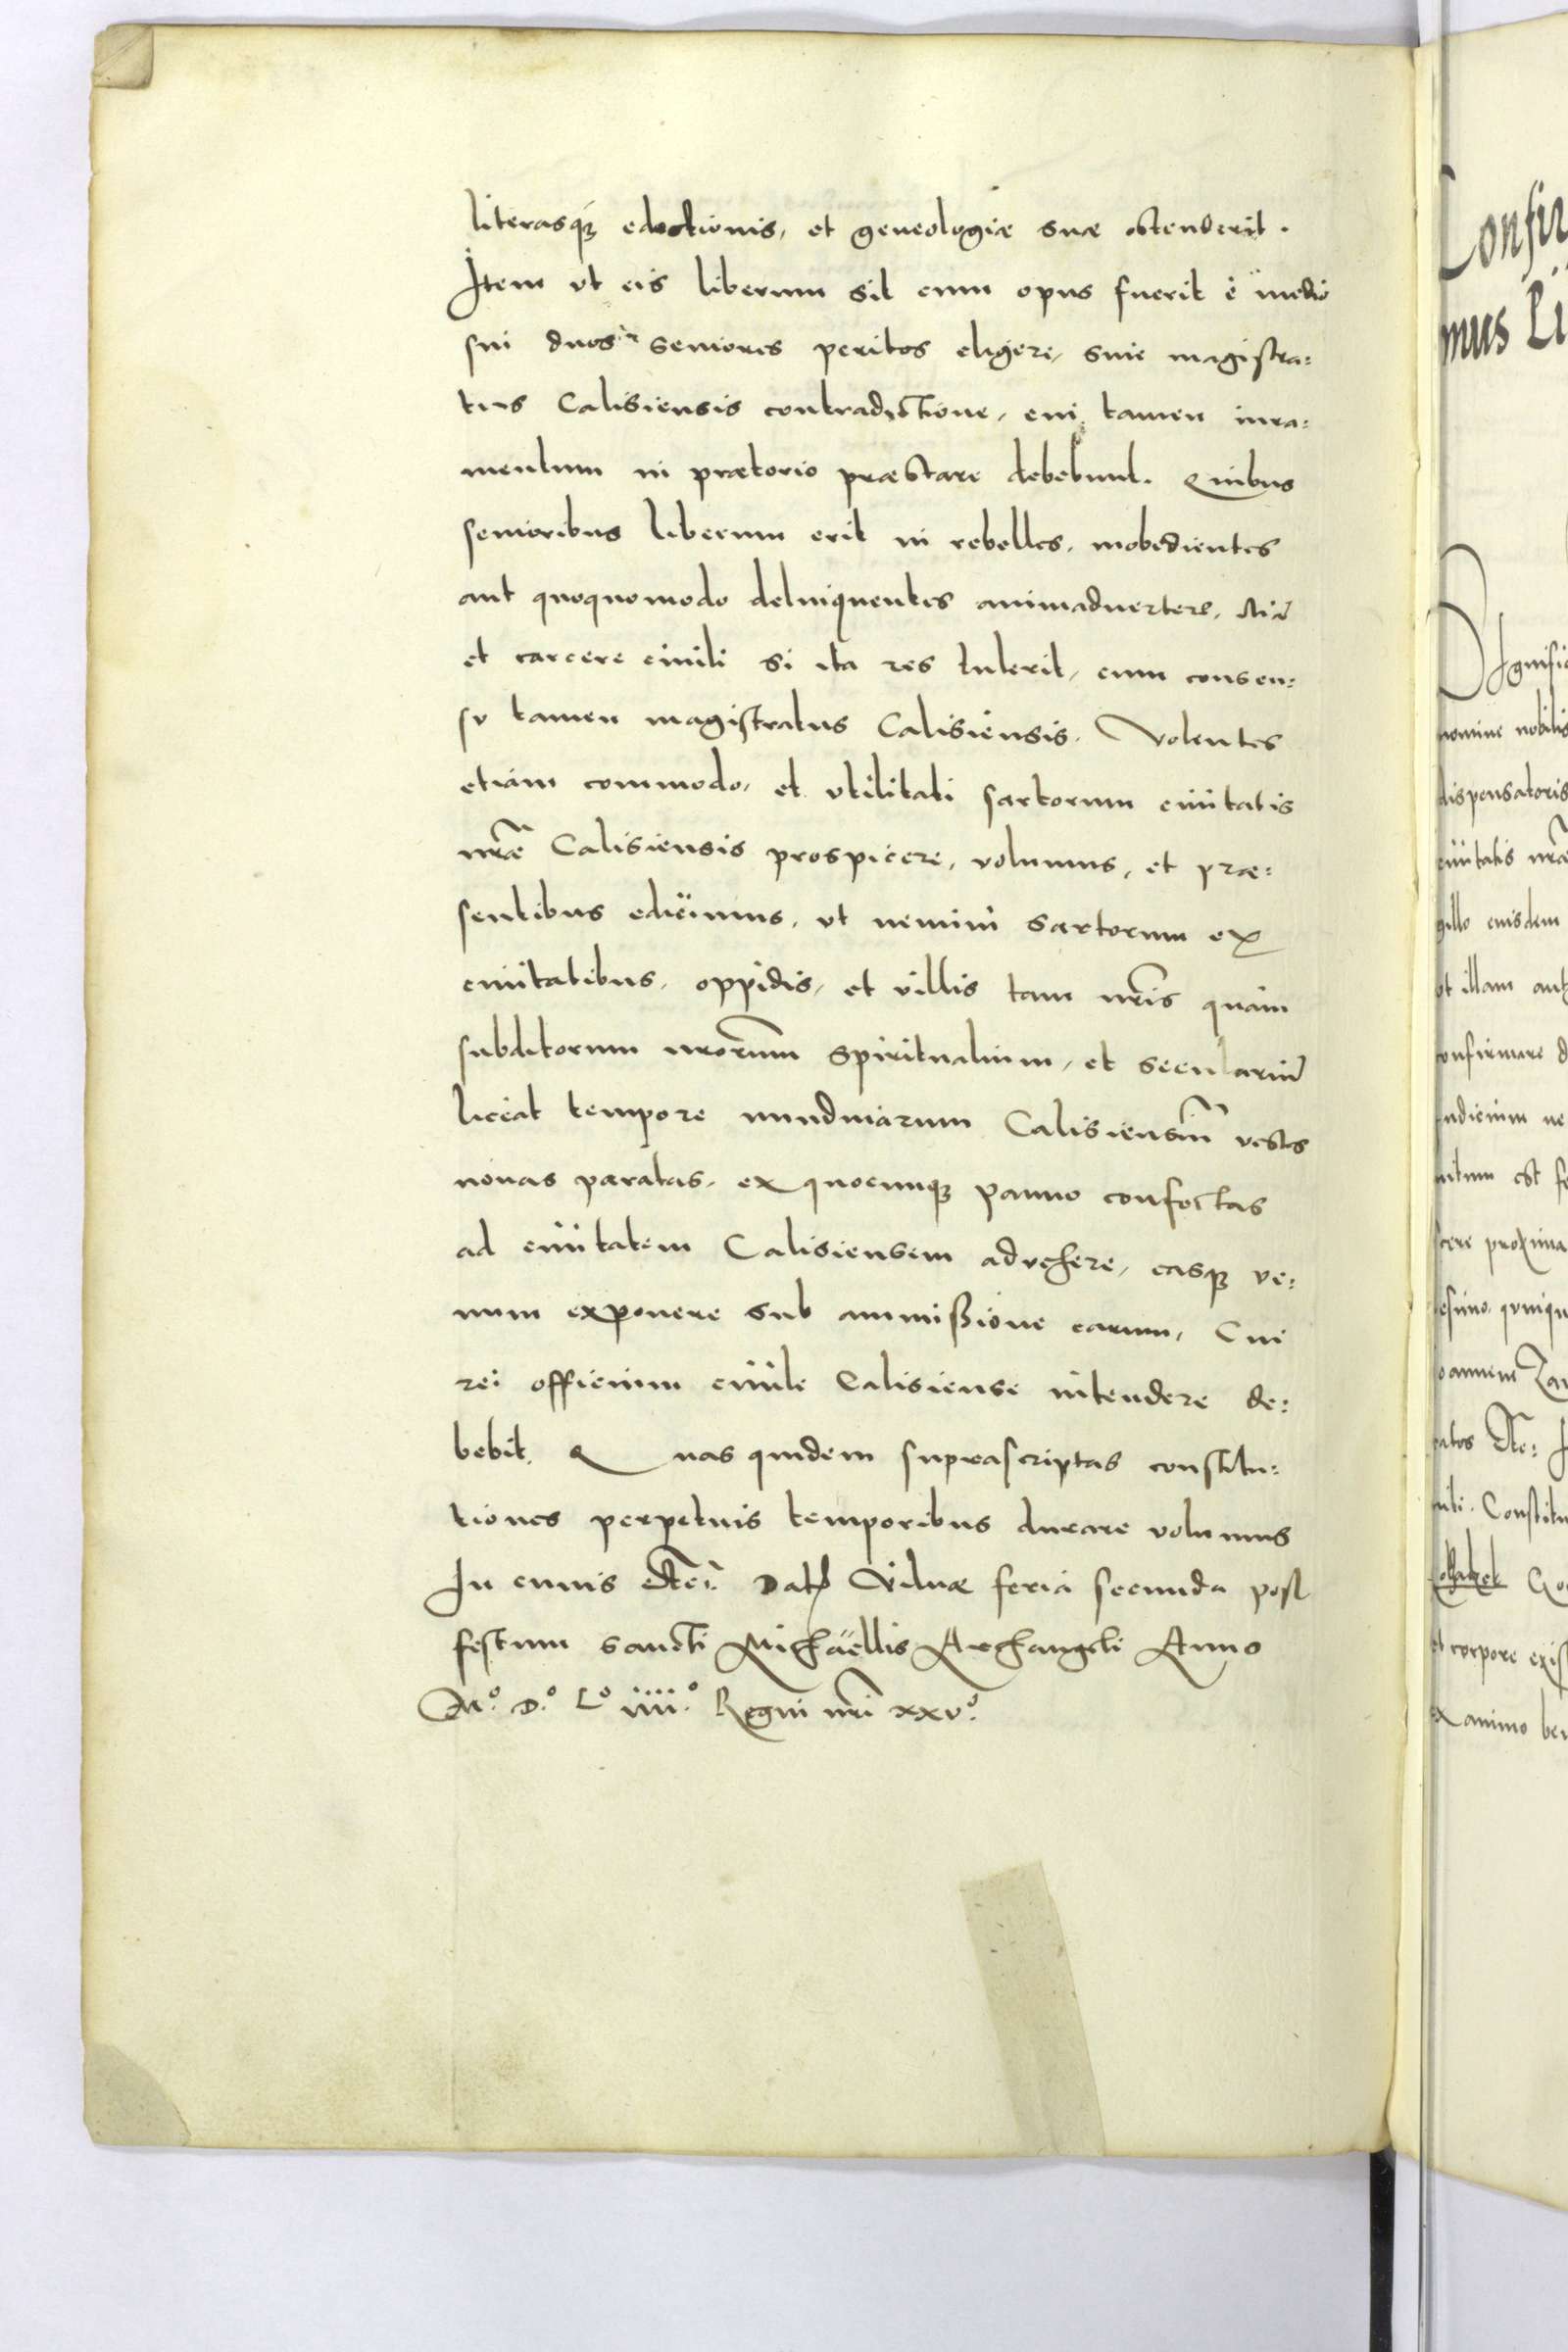 literasq́ꝫ edoctionis, et geneologiæ suæ ostenderit.
Item vt eis liberum sit cum opus fuerit è medio
sui duos seniores peritos eligere, sine magistra:
tus Calisiensis contradictione, cui tamen iura:
mentum in prætorio præstare debebunt. Quibus
senioribus liberum erit in rebelles, inobedientes
aut quoquomodo delinquentes animaduertere, etiā
et carcere ciuili si ita res tulerit, cum consen:
sv tamen magistratus Calisiensis. Volentes
etiam commodo, et vtilitati sartorum ciuitatis
nr̃æ Calisiensis prospicere, volumus, et præ:
sentibus edicimus, vt nemini sartorum ex
ciuitatibus, oppidis, et villis tam nr̃is quàm
subditorum nrõrum spiritualium, et seculariũ
liceat tempore nundinarum Calisiensiũ vestes
nouas paratas, ex quocunqꝫ panno confectas
ad ciuitatem Calisiensem advehere, easqꝫ ve:
num exponere sub ammißione earum, Cui
rei officium ciuile Calisiense intendere de:
bebit. Quas quidem suprascriptas constitu:
tiones perpetuis temporibus durare volumus
In cuius etc̃. Dat̃ Vilnæ feria secunda post
festum sancti Michaëllis Archangeli Anno
Mº. Dº. Lº iiiiº. Regni nr̃i xxvº.
Confir
mus Li
nomine nobilis
dispensatoris
ciuitatis nr̃æ
gillo eiusdem
vt illam
confirmare d
cere proxima
Constitu
et corpore exis
ex animo